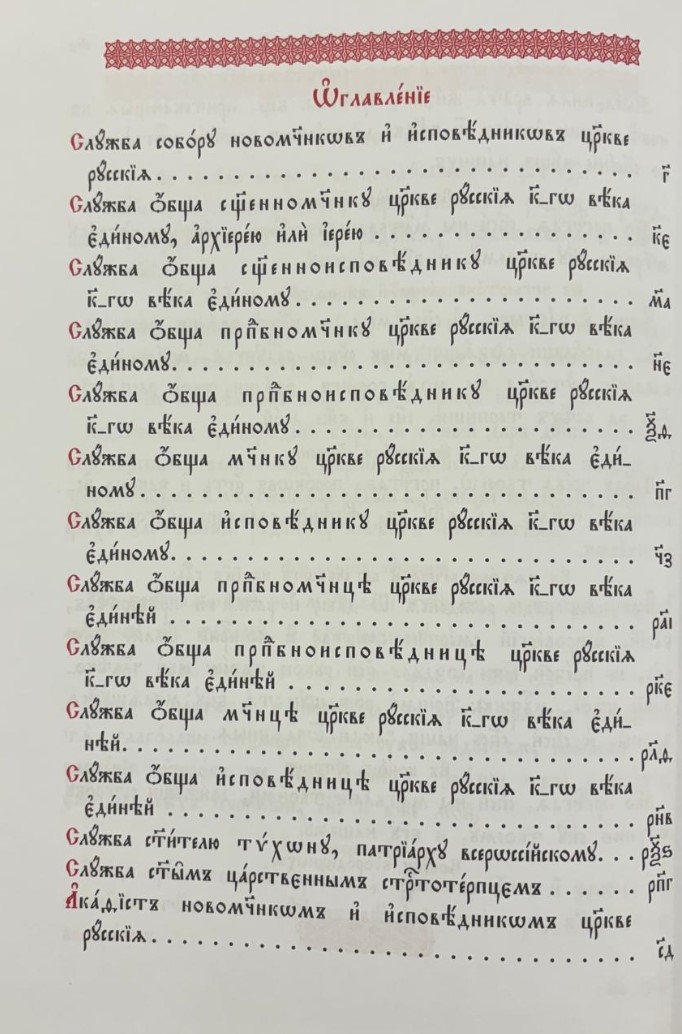 Ѡ҆главле́нїе
Слꙋжба собо́рꙋ новомч҃нкѡвъ и҆ и҆сповѣ́дникѡвъ цр҃кве
рꙋсскїѧ. . . . . . . . . . . . . . . . . . . . . . . . . . . . . . г҃
Слꙋжба ѻ҆́бща сщ҃енномч҃нкꙋ цр҃кве рꙋсскїѧ к҃-гѡ вѣ́ка
є҆ди́номꙋ, а҆рхїере́ю и҆лѝ і҆ере́ю . . . . . . . . . . . . . . . . . к҃є
Слꙋжба ѻ҆́бща сщ҃енноисповѣ́дникꙋ цр҃кве рꙋсскїѧ
к҃-гѡ вѣ́ка є҆ди́номꙋ. . . . . . . . . . . . . . . . . . . . . . м҃а
Слꙋжба ѻ҆́бща прпⷣбномч҃нкꙋ цр҃кве рꙋсскїѧ к҃-гѡ вѣ́ка
є҆ди́номꙋ. . . . . . . . . . . . . . . . . . . . . . . . . . . . . н҃є
Слꙋжба ѻ҆́бща прпⷣбноисповѣ́дникꙋ цр҃кве рꙋсскїѧ
к҃-гѡ вѣ́ка є҆ди́номꙋ. . . . . . . . . . . . . . . . . . . . . . ѯ҃ѳ
Слꙋжба ѻ҆́бща мч҃нкꙋ цр҃кве рꙋсскїѧ к҃-гѡ вѣ́ка є҆ди́-
номꙋ. . . . . . . . . . . . . . . . . . . . . . . . . . . . . . . п҃г
Слꙋжба ѻ҆́бща и҆сповѣ́дникꙋ цр҃кве рꙋсскїѧ к҃-гѡ вѣ́ка
є҆ди́номꙋ. . . . . . . . . . . . . . . . . . . . . . . . . . . . . ч҃з
Слꙋжба ѻ҆́бща прпⷣбномч҃нцѣ цр҃кве рꙋсскїѧ к҃-гѡ вѣ́ка
є҆ди́нѣй . . . . . . . . . . . . . . . . . . . . . . . . . . . . . ра҃і
Слꙋжба ѻ҆́бща прпⷣбноисповѣ́дницѣ цр҃кве рꙋсскїѧ
к҃-гѡ вѣ́ка є҆ди́нѣй . . . . . . . . . . . . . . . . . . . . . . рк҃є
Слꙋжба ѻ҆́бща мч҃нцѣ цр҃кве рꙋсскїѧ к҃-гѡ вѣ́ка є҆ди́-
нѣй. . . . . . . . . . . . . . . . . . . . . . . . . . . . . . . . рл҃ѳ
Слꙋжба ѻ҆́бща и҆сповѣ́дницѣ цр҃кве рꙋсскїѧ к҃-гѡ вѣ́ка
є҆ди́нѣй . . . . . . . . . . . . . . . . . . . . . . . . . . . . . рн҃в
Слꙋжба ст҃и́телю тѵ́хѡнꙋ, патрїа́рхꙋ всерѡссі́йскомꙋ. . . рѯ҃ѕ
Слꙋжба ст҃ы̑мъ ца́рствєннымъ стрⷭ҇тоте́рпцємъ . . . . . . . рп҃г
А҆ка́ѳїстъ новомч҃нкѡмъ и҆ и҆сповѣ́дникѡмъ цр҃кве
рꙋсскїѧ. . . . . . . . . . . . . . . . . . . . . . . . . . . . . . с҃д